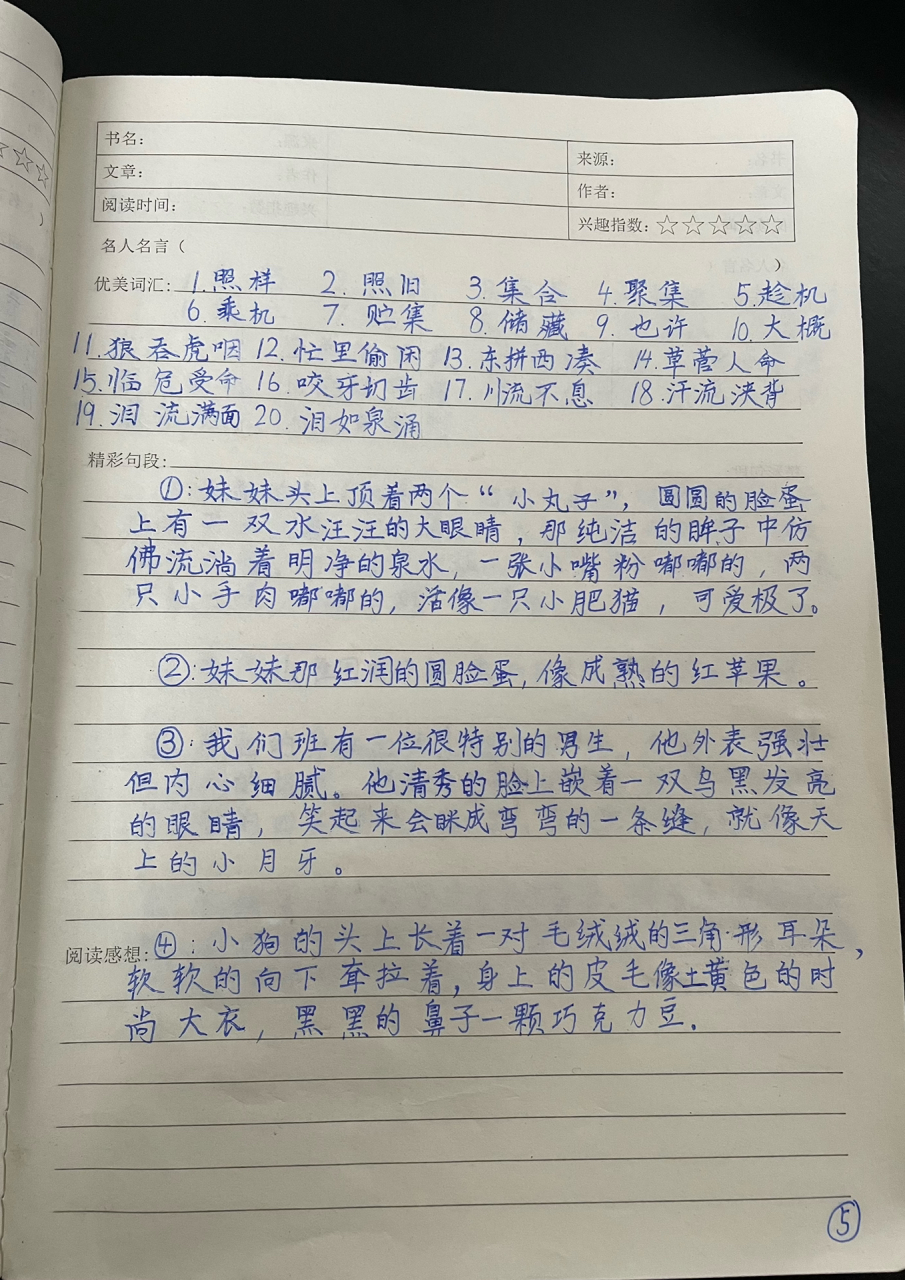 书名：
来源：
文章：
作者：
阅读时间：
兴趣指数：☆☆☆☆☆
名人名言（ ）
优美词汇：1.照样 2.照旧 3.集合 4.聚集 5.趁机
6.乘机 7.贮集 8.储藏 9.也许 10.大概
11.狼吞虎咽 12.忙里偷闲 13.东拼西凑 14.草菅人命
15.临危受命 16.咬牙切齿 17.川流不息 18.汗流浃背
19.泪流满面 20.泪如泉涌
精彩句段：
①：妹妹头上顶着两个“小丸子”，圆圆的脸蛋
上有一双水汪汪的大眼睛，那纯洁的眸子中仿
佛流淌着明净的泉水，一张小嘴粉嘟嘟的，两
只小手肉嘟嘟的，活像一只小肥猫，可爱极了。
②：妹妹那红润的圆脸蛋，像成熟的红苹果。
③：我们班有一位很特别的男生，他外表强壮
但内心细腻。他清秀的脸上嵌着一双乌黑发亮
的眼睛，笑起来会眯成弯弯的一条缝，就像天
上的小月牙。
阅读感想：④：小狗的头上长着一对毛绒绒的三角形耳朵，
软软的向下耷拉着，身上的皮毛像土黄色的时
尚大衣，黑黑的鼻子一颗巧克力豆.
⑤